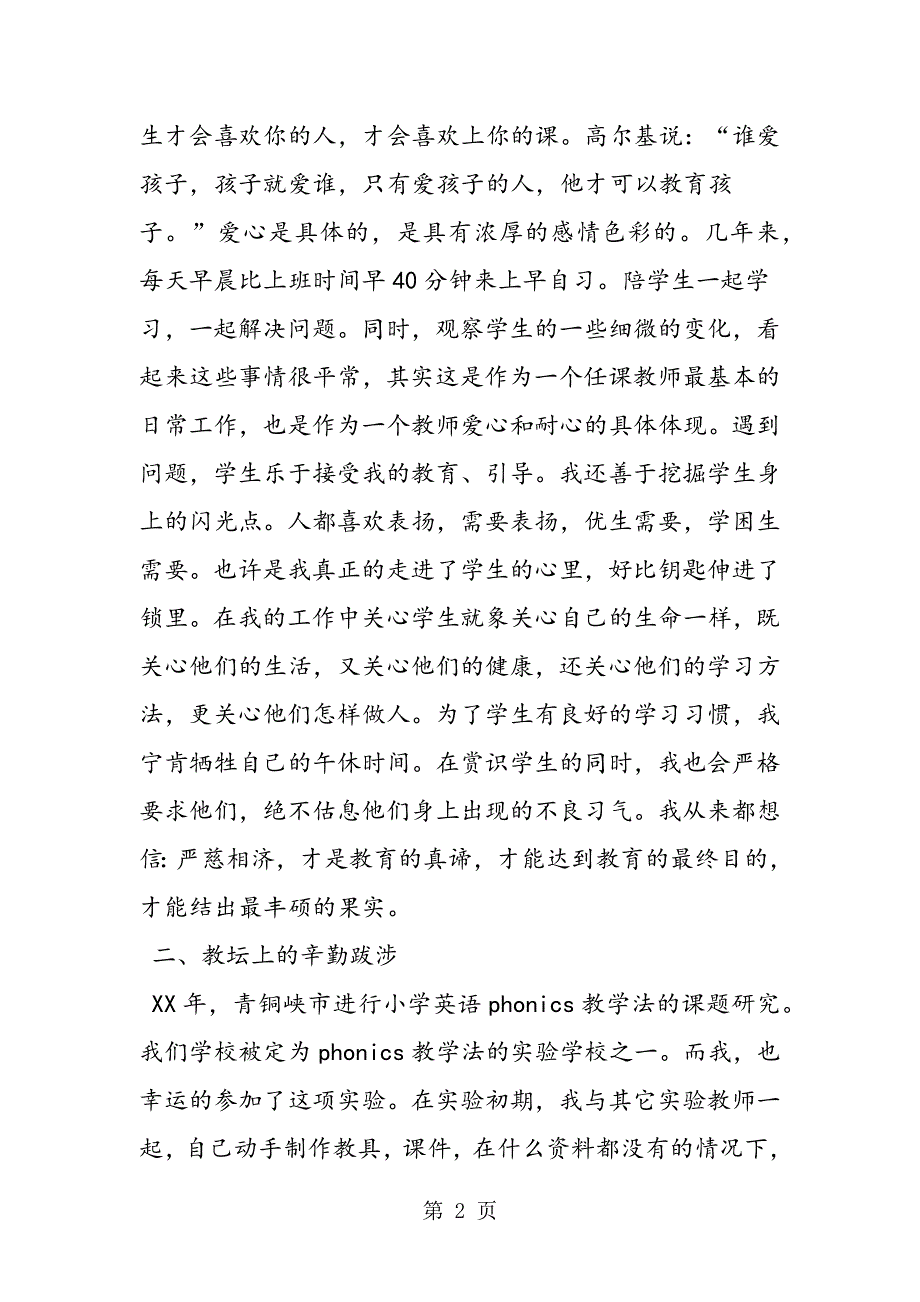 生才会喜欢你的人，才会喜欢上你的课。高尔基说：“谁爱
孩子，孩子就爱谁，只有爱孩子的人，他才可以教育孩
子。”爱心是具体的，是具有浓厚的感情色彩的。几年来，
每天早晨比上班时间早40分钟来上早自习。陪学生一起学
习，一起解决问题。同时，观察学生的一些细微的变化，看
起来这些事情很平常，其实这是作为一个任课教师最基本的
日常工作，也是作为一个教师爱心和耐心的具体体现。遇到
问题，学生乐于接受我的教育、引导。我还善于挖掘学生身
上的闪光点。人都喜欢表扬，需要表扬，优生需要，学困生
需要。也许是我真正的走进了学生的心里，好比钥匙伸进了
锁里。在我的工作中关心学生就象关心自己的生命一样，既
关心他们的生活，又关心他们的健康，还关心他们的学习方
法，更关心他们怎样做人。为了学生有良好的学习习惯，我
宁肯牺牲自己的午休时间。在赏识学生的同时，我也会严格
要求他们，绝不估息他们身上出现的不良习气。我从来都想
信：严慈相济，才是教育的真谛，才能达到教育的最终目的，
才能结出最丰硕的果实。
二、教坛上的辛勤跋涉
XX年，青铜峡市进行小学英语phonics教学法的课题研究。
我们学校被定为phonics教学法的实验学校之一。而我，也
幸运的参加了这项实验。在实验初期，我与其它实验教师一
起，自己动手制作教具，课件，在什么资料都没有的情况下，
第 2 页